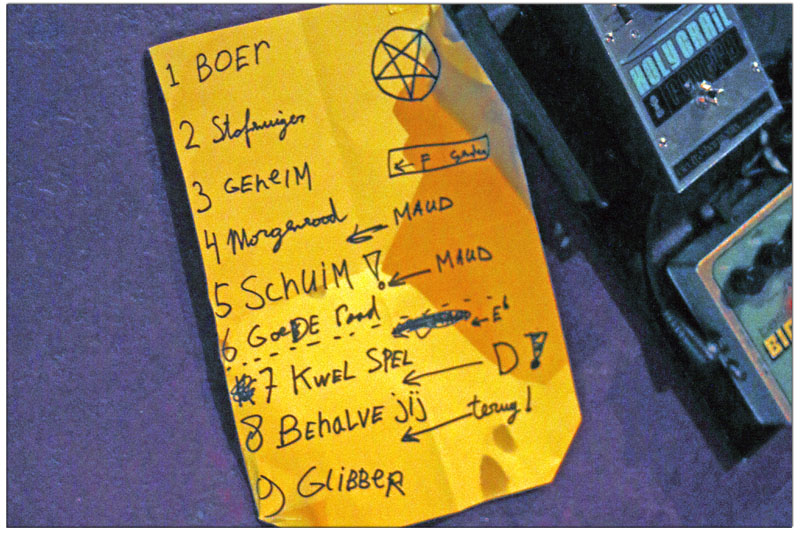 1 BOEr
2 Stofzuiger
3 GEHEIM
← F
4 Morgenrood ← MAUD
5 SCHUIM ! ← MAUD
6 GOEDE raad ← Eb
7 KWEL SPEL ← D!
8 BEHALVE jij ← terug!
9 GLIBBER
HOLY GRAIL